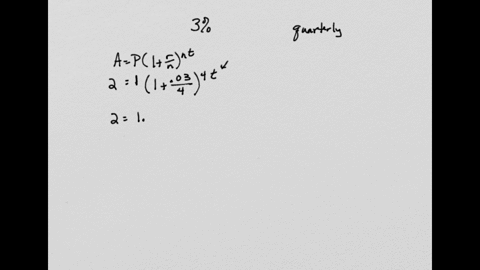 3% quarterly
A=P(1+r/n)^nt
2 = 1(1+.03/4)^4t
2 = 1.